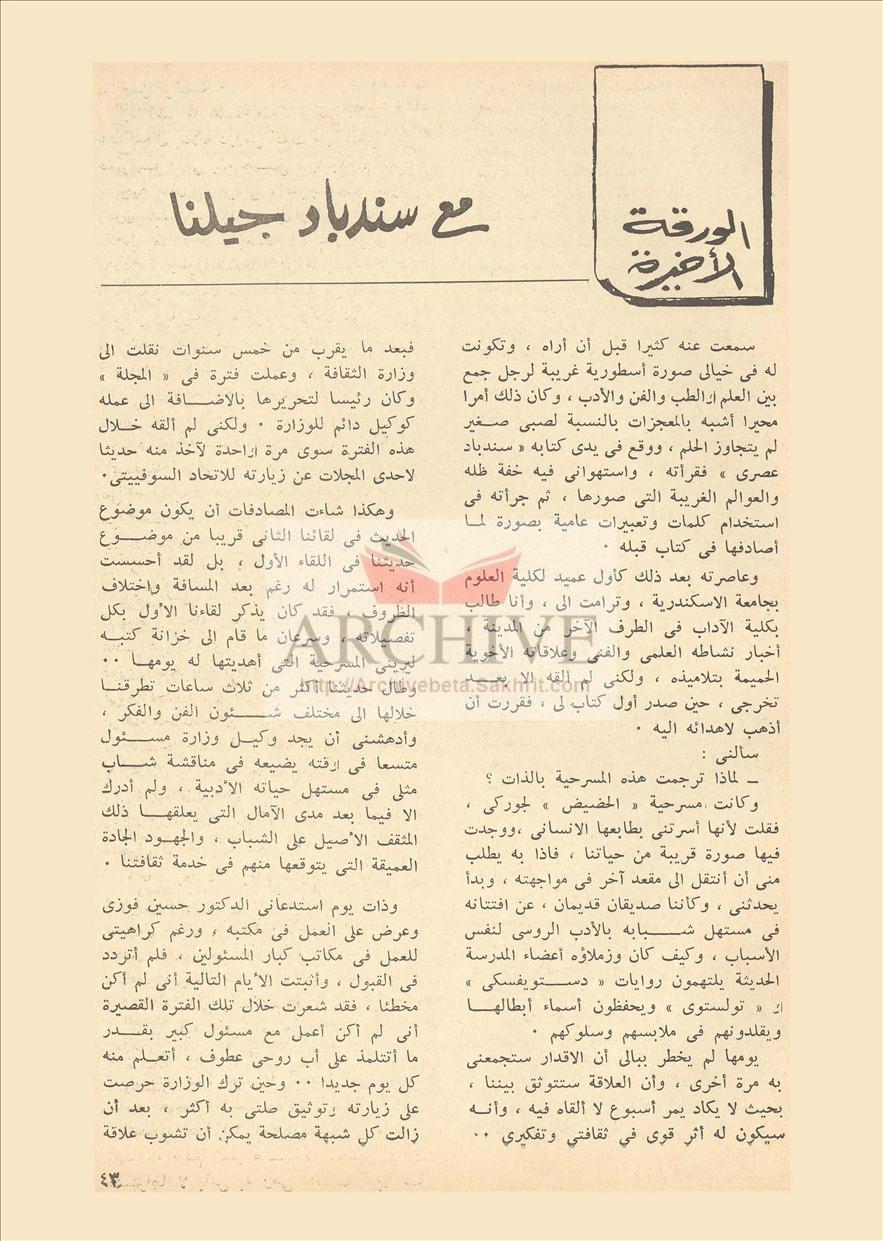 الورقة
الأخيرة
مع سندباد جيلنا
سمعت عنه كثيرا قبل أن أراه ، وتكونت
له فى خيالى صورة أسطورية غريبة لرجل جمع
بين العلم والطب والفن والأدب ، وكان ذلك أمرا
محيرا أشبه بالمعجزات بالنسبة لصبى صغير
لم يتجاوز الحلم ، ووقع فى يدى كتابه « سندباد
عصرى » فقرأته ، واستهوانى فيه خفة ظله
والعوالم الغريبة التى صورها ، ثم جرأته فى
استخدام كلمات وتعبيرات عامية بصورة لما
أصادفها فى كتاب قبله .
وعاصرته بعد ذلك كأول عميد لكلية العلوم
بجامعة الاسكندرية ، وترامت الى ، وأنا طالب
بكلية الآداب فى الطرف الآخر من المدينة ،
أخبار نشاطه العلمى والفنى وعلاقاته الأخوية
الحميمة بتلاميذه ، ولكنى لم ألقه الا بعد
تخرجى ، حين صدر أول كتاب لى ، فقررت أن
أذهب لاهدائه اليه .
سألنى :
ــ لماذا ترجمت هذه المسرحية بالذات ؟
وكانت مسرحية « الحضيض » لجوركى ،
فقلت لأنها أسرتنى بطابعها الانسانى ،ووجدت
فيها صورة قريبة من حياتنا ، فاذا به يطلب
منى أن أنتقل الى مقعد آخر فى مواجهته ، وبدأ
يحدثنى ، وكأننا صديقان قديمان ، عن افتتانه
فى مستهل شبابه بالأدب الروسى لنفس
الأسباب ، وكيف كان وزملاؤه أعضاء المدرسة
الحديثة يلتهمون روايات « دستويفسكى »
و « تولستوى » ويحفظون أسماء أبطالها
ويقلدونهم فى ملابسهم وسلوكهم .
يومها لم يخطر ببالى أن الاقدار ستجمعنى
به مرة أخرى ، وأن العلاقة ستتوثق بيننا ،
بحيث لا يكاد يمر أسبوع لا ألقاه فيه ، وأنه
سيكون له أثر قوى في ثقافتي وتفكيري ..
فبعد ما يقرب من خمس سنوات نقلت الى
وزارة الثقافة ، وعملت فترة فى « المجلة »
وكان رئيسا لتحريرها بالاضافة الى عمله
كوكيل دائم للوزارة . ولكنى لم ألقه خلال
هذه الفترة سوى مرة واحدة لآخذ منه حديثا
لاحدى المجلات عن زيارته للاتحاد السوفييتى .
وهكذا شاءت المصادفات أن يكون موضوع
الحديث فى لقائنا الثانى قريبا من موضوع
حديثنا فى اللقاء الأول ، بل لقد أحسست
أنه استمرار له رغم بعد المسافة واختلاف
الظروف ، فقد كان يذكر لقاءنا الأول بكل
تفصيلاته ، وسرعان ما قام الى خزانة كتبه
ليرينى المسرحية التى أهديتها له يومها ..
وطال حديثنا أكثر من ثلاث ساعات تطرقنا
خلالها الى مختلف شئون الفن والفكر ،
وأدهشنى أن يجد وكيل وزارة مسئول
متسعا فى وقته يضيعه فى مناقشة شاب
مثلى فى مستهل حياته الأدبية ، ولم أدرك
الا فيما بعد مدى الآمال التى يعلقها ذلك
المثقف الأصيل على الشباب ، والجهود الجادة
العميقة التى يتوقعها منهم فى خدمة ثقافتنا .
وذات يوم استدعانى الدكتور حسين فوزى
وعرض على العمل فى مكتبه ، ورغم كراهيتى
للعمل فى مكاتب كبار المسئولين ، فلم أتردد
فى القبول ، وأثبتت الأيام التالية أنى لم أكن
مخطئا ، فقد شعرت خلال تلك الفترة القصيرة
أنى لم أكن أعمل مع مسئول كبير بقدر
ما أتتلمذ على أب روحى عطوف ، أتعلم منه
كل يوم جديدا .. وحين ترك الوزارة حرصت
على زيارته وتوثيق صلتى به أكثر ، بعد أن
زالت كل شبهة مصلحة يمكن أن تشوب علاقة
٤٣
ARCHIVE
http://Archivebeta.Sakhrit.com